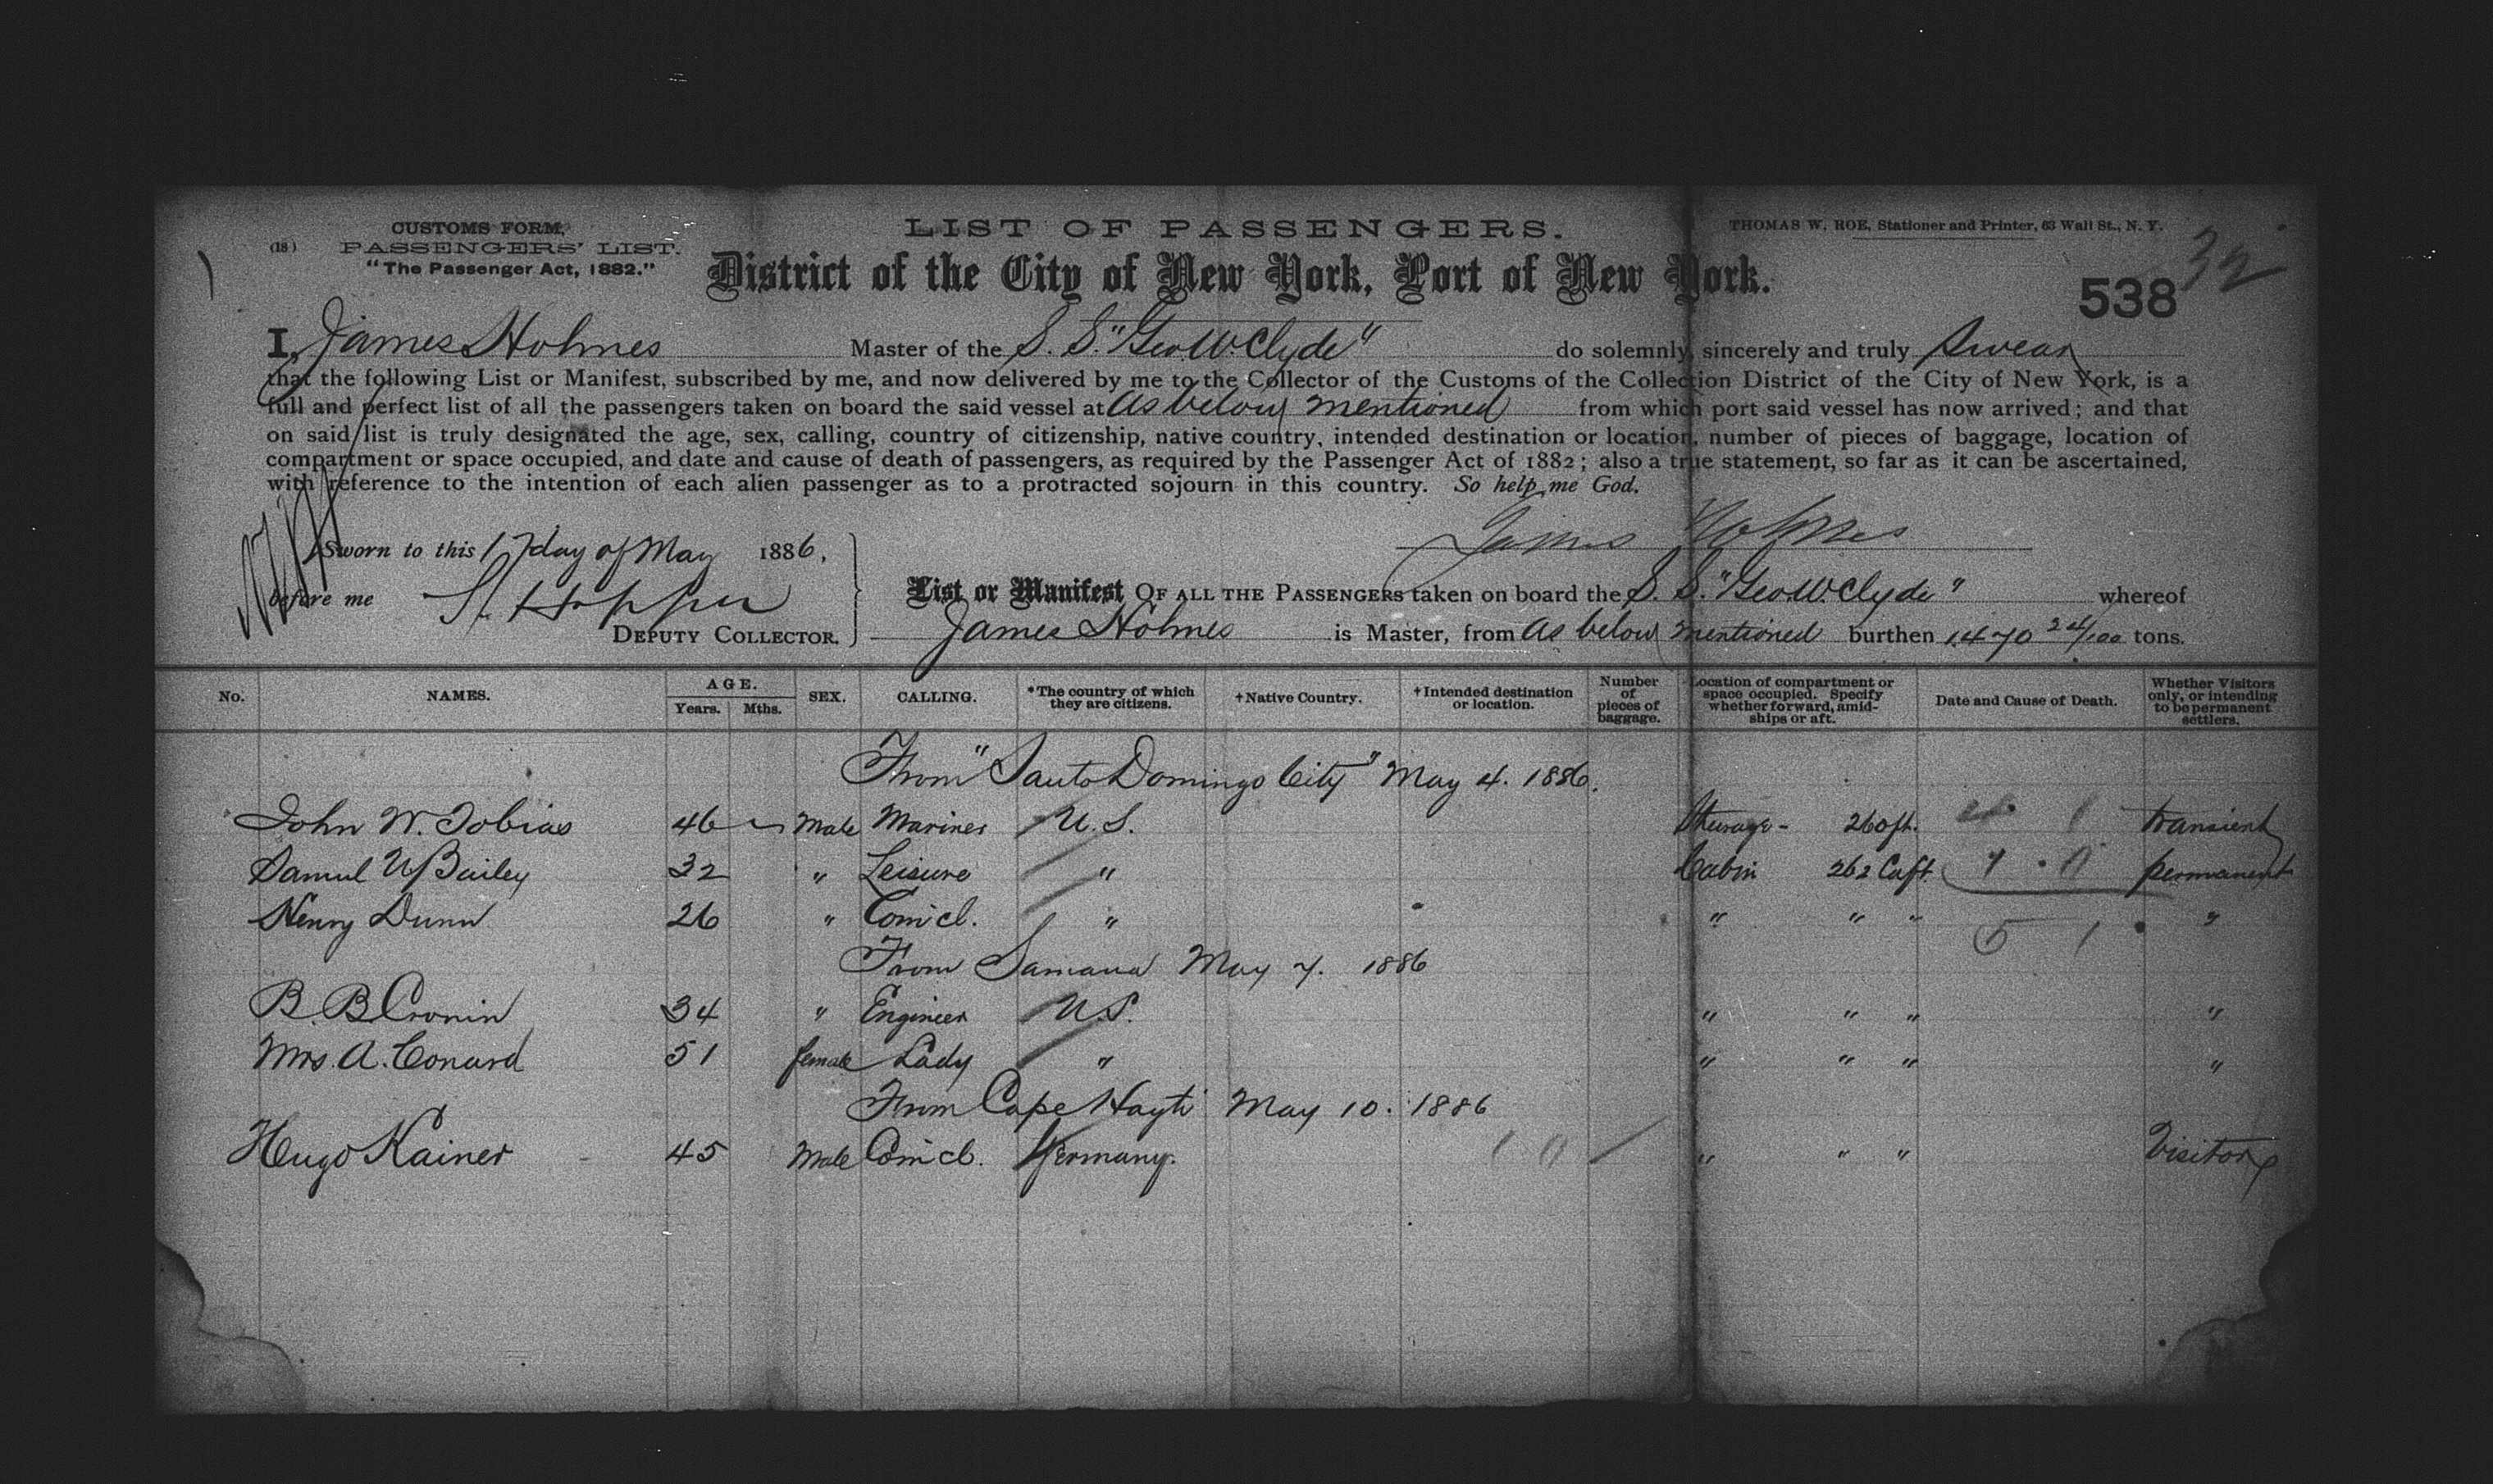 CUSTOMS FORM,
(18) PASSENGERS' LIST.
"The Passenger Act, 1882."
LIST OF PASSENGERS.
THOMAS W. ROE, Stationer and Printer, 63 Wall St., N. Y.
District of the City of New York, Port of New York.
538
32
I, James Holmes Master of the S. S. "Geo. W. Clyde" do solemnly, sincerely and truly Swear
that the following List or Manifest, subscribed by me, and now delivered by me to the Collector of the Customs of the Collection District of the City of New York, is a
full and perfect list of all the passengers taken on board the said vessel at as below mentioned from which port said vessel has now arrived; and that
on said list is truly designated the age, sex, calling, country of citizenship, native country, intended destination or location, number of pieces of baggage, location of
compartment or space occupied, and date and cause of death of passengers, as required by the Passenger Act of 1882; also a true statement, so far as it can be ascertained,
with reference to the intention of each alien passenger as to a protracted sojourn in this country. So help me God.
James Holmes
Sworn to this 17 day of May 1886,
before me Hopper
DEPUTY COLLECTOR.
List or Manifest OF ALL THE PASSENGERS taken on board the S. S. "Geo. W. Clyde" whereof
James Holmes is Master, from as below mentioned burthen 1470 24/100 tons.
No. NAMES. AGE. Years. Mths. SEX. CALLING. *The country of which they are citizens. †Native Country. †Intended destination or location. Number of pieces of baggage. Location of compartment or space occupied. Specify whether forward, amidships or aft. Date and Cause of Death. Whether Visitors only, or intending to be permanent settlers.
From "Santo Domingo City" May 4. 1886.
John W. Tobias 46 Male Mariner U.S. Steerage - 260 ft. transient
Samul W Bailey 32 " Leisure " Cabin 262 Cu ft. permanent
Henry Dunn 26 " Comcl. " " " " "
From Samana May 7. 1886
B. B. Cronin 34 " Engineer U.S. " " " "
Mrs. A. Conard 51 female Lady " " " " "
From Cape Hayti May 10. 1886
Hugo Kainer 45 Male Comcl. Germany. " " " Visitor